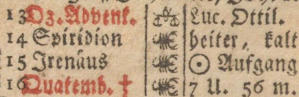 13 Dz. Advent. ♎ Luc. Ottil.
14 Spiridion heiter, kalt
15 Irenäus ☉ Aufgang
16 Quatemb. † 7 U. 56 m.